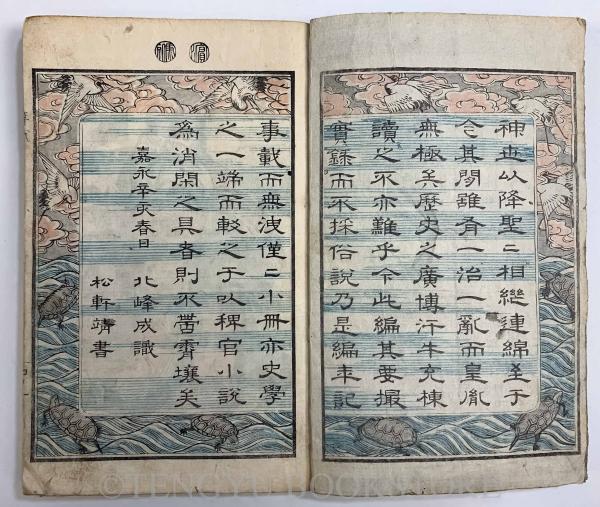 神世以降聖〻相繼連綿至于
今其間雖有一治一亂而皇胤
無極矣歷史之廣博汗牛充棟
讀之不亦難乎今此編其要撮
實錄而不採俗說乃是編年記
事載而無洩僅〻小冊亦史學
之一端而較之于以稗官小說
為消閑之具者則不啻霄壤矣
嘉永辛亥春日
北峰成識
松軒靖書
©TENGYU BOOKSTORE